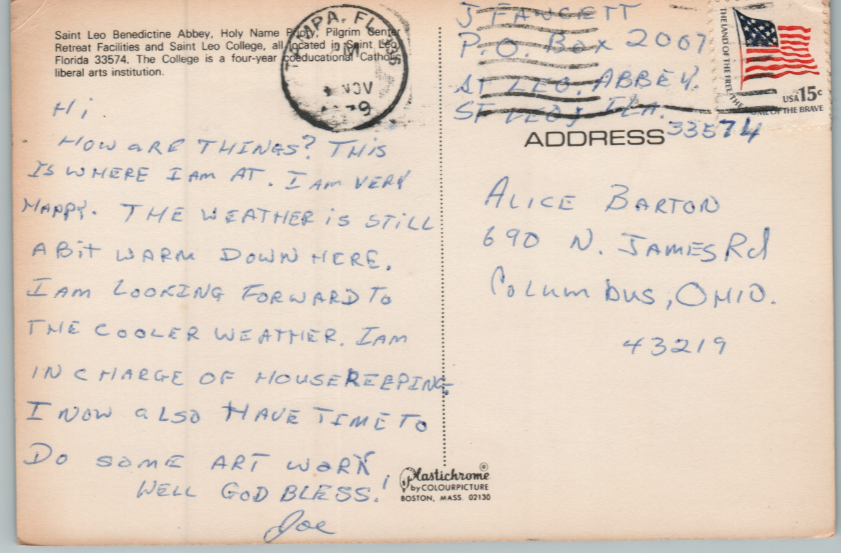 Saint Leo Benedictine Abbey, Holy Name Priory, Pilgrim Center
Retreat Facilities and Saint Leo College, all located in Saint Leo,
Florida 33574. The College is a four-year coeducational Catholic
liberal arts institution.
TAMPA, FL
NOV
Hi.
HOW ARE THINGS? THIS
IS WHERE I AM AT. I AM VERY
HAPPY. THE WEATHER IS STILL
A BIT WARM DOWN HERE.
I AM LOOKING FORWARD TO
THE COOLER WEATHER. I AM
IN CHARGE OF HOUSEKEEPING.
I NOW ALSO HAVE TIME TO
DO SOME ART WORK
WELL GOD BLESS!
Joe
J FAWCETT
P.O. Box 2007
ST LEO. ABBEY.
ST LEO, FLA.
33574
THE LAND OF THE FREE
THE HOME OF THE BRAVE
USA 15c
ADDRESS
ALICE BARTON
690 N. JAMES Rd
Columbus, OHIO.
43219
Plastichrome®
by COLOURPICTURE
BOSTON, MASS. 02130